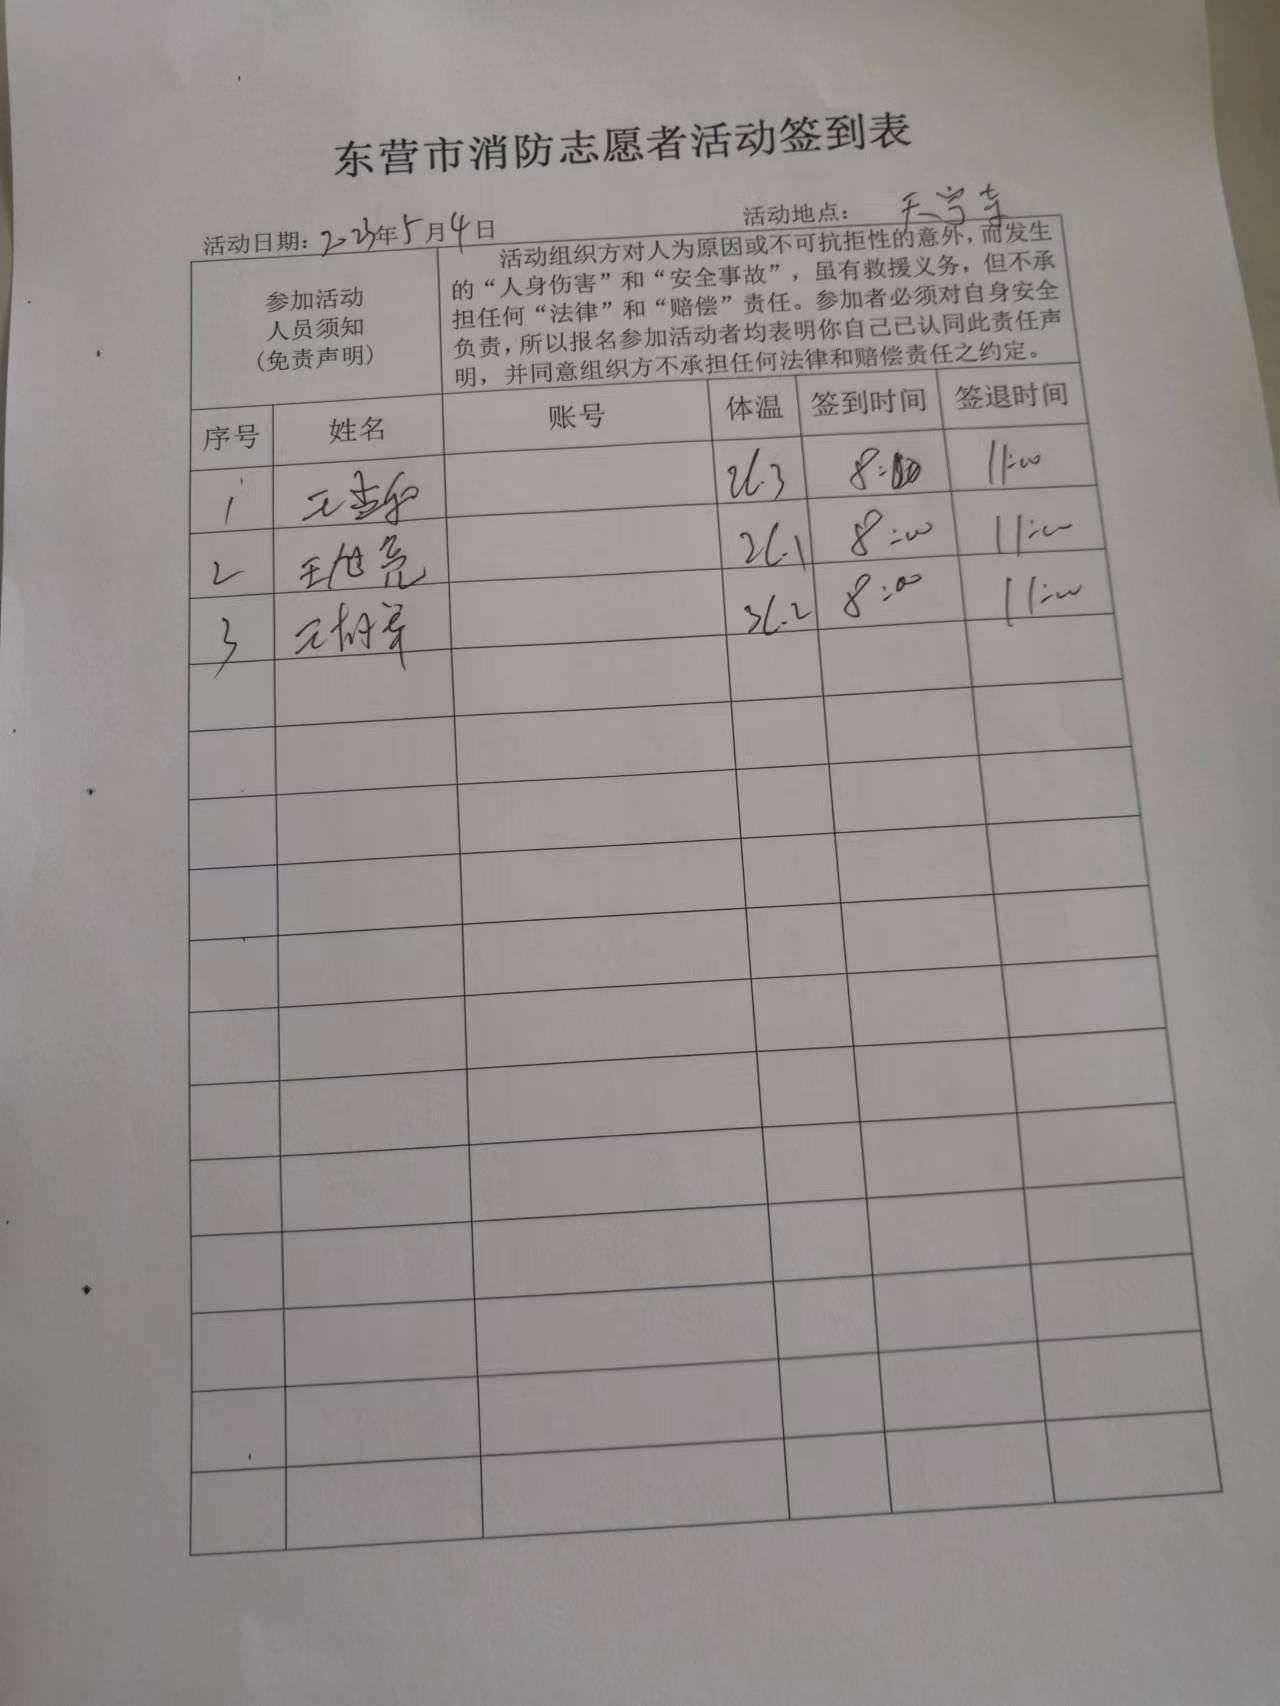 东营市消防志愿者活动签到表
活动日期：2023年5月4日 活动地点：天宁寺
参加活动
人员须知
(免责声明)
活动组织方对人为原因或不可抗拒性的意外，而发生
的“人身伤害”和“安全事故”，虽有救援义务，但不承
担任何“法律”和“赔偿”责任。参加者必须对自身安全
负责，所以报名参加活动者均表明你自己已认同此责任声
明，并同意组织方不承担任何法律和赔偿责任之约定。
序号 姓名 账号 体温 签到时间 签退时间
1 36.3 8:00 11:00
2 王旭亮 36.1 8:00 11:00
3 36.2 8:00 11:00